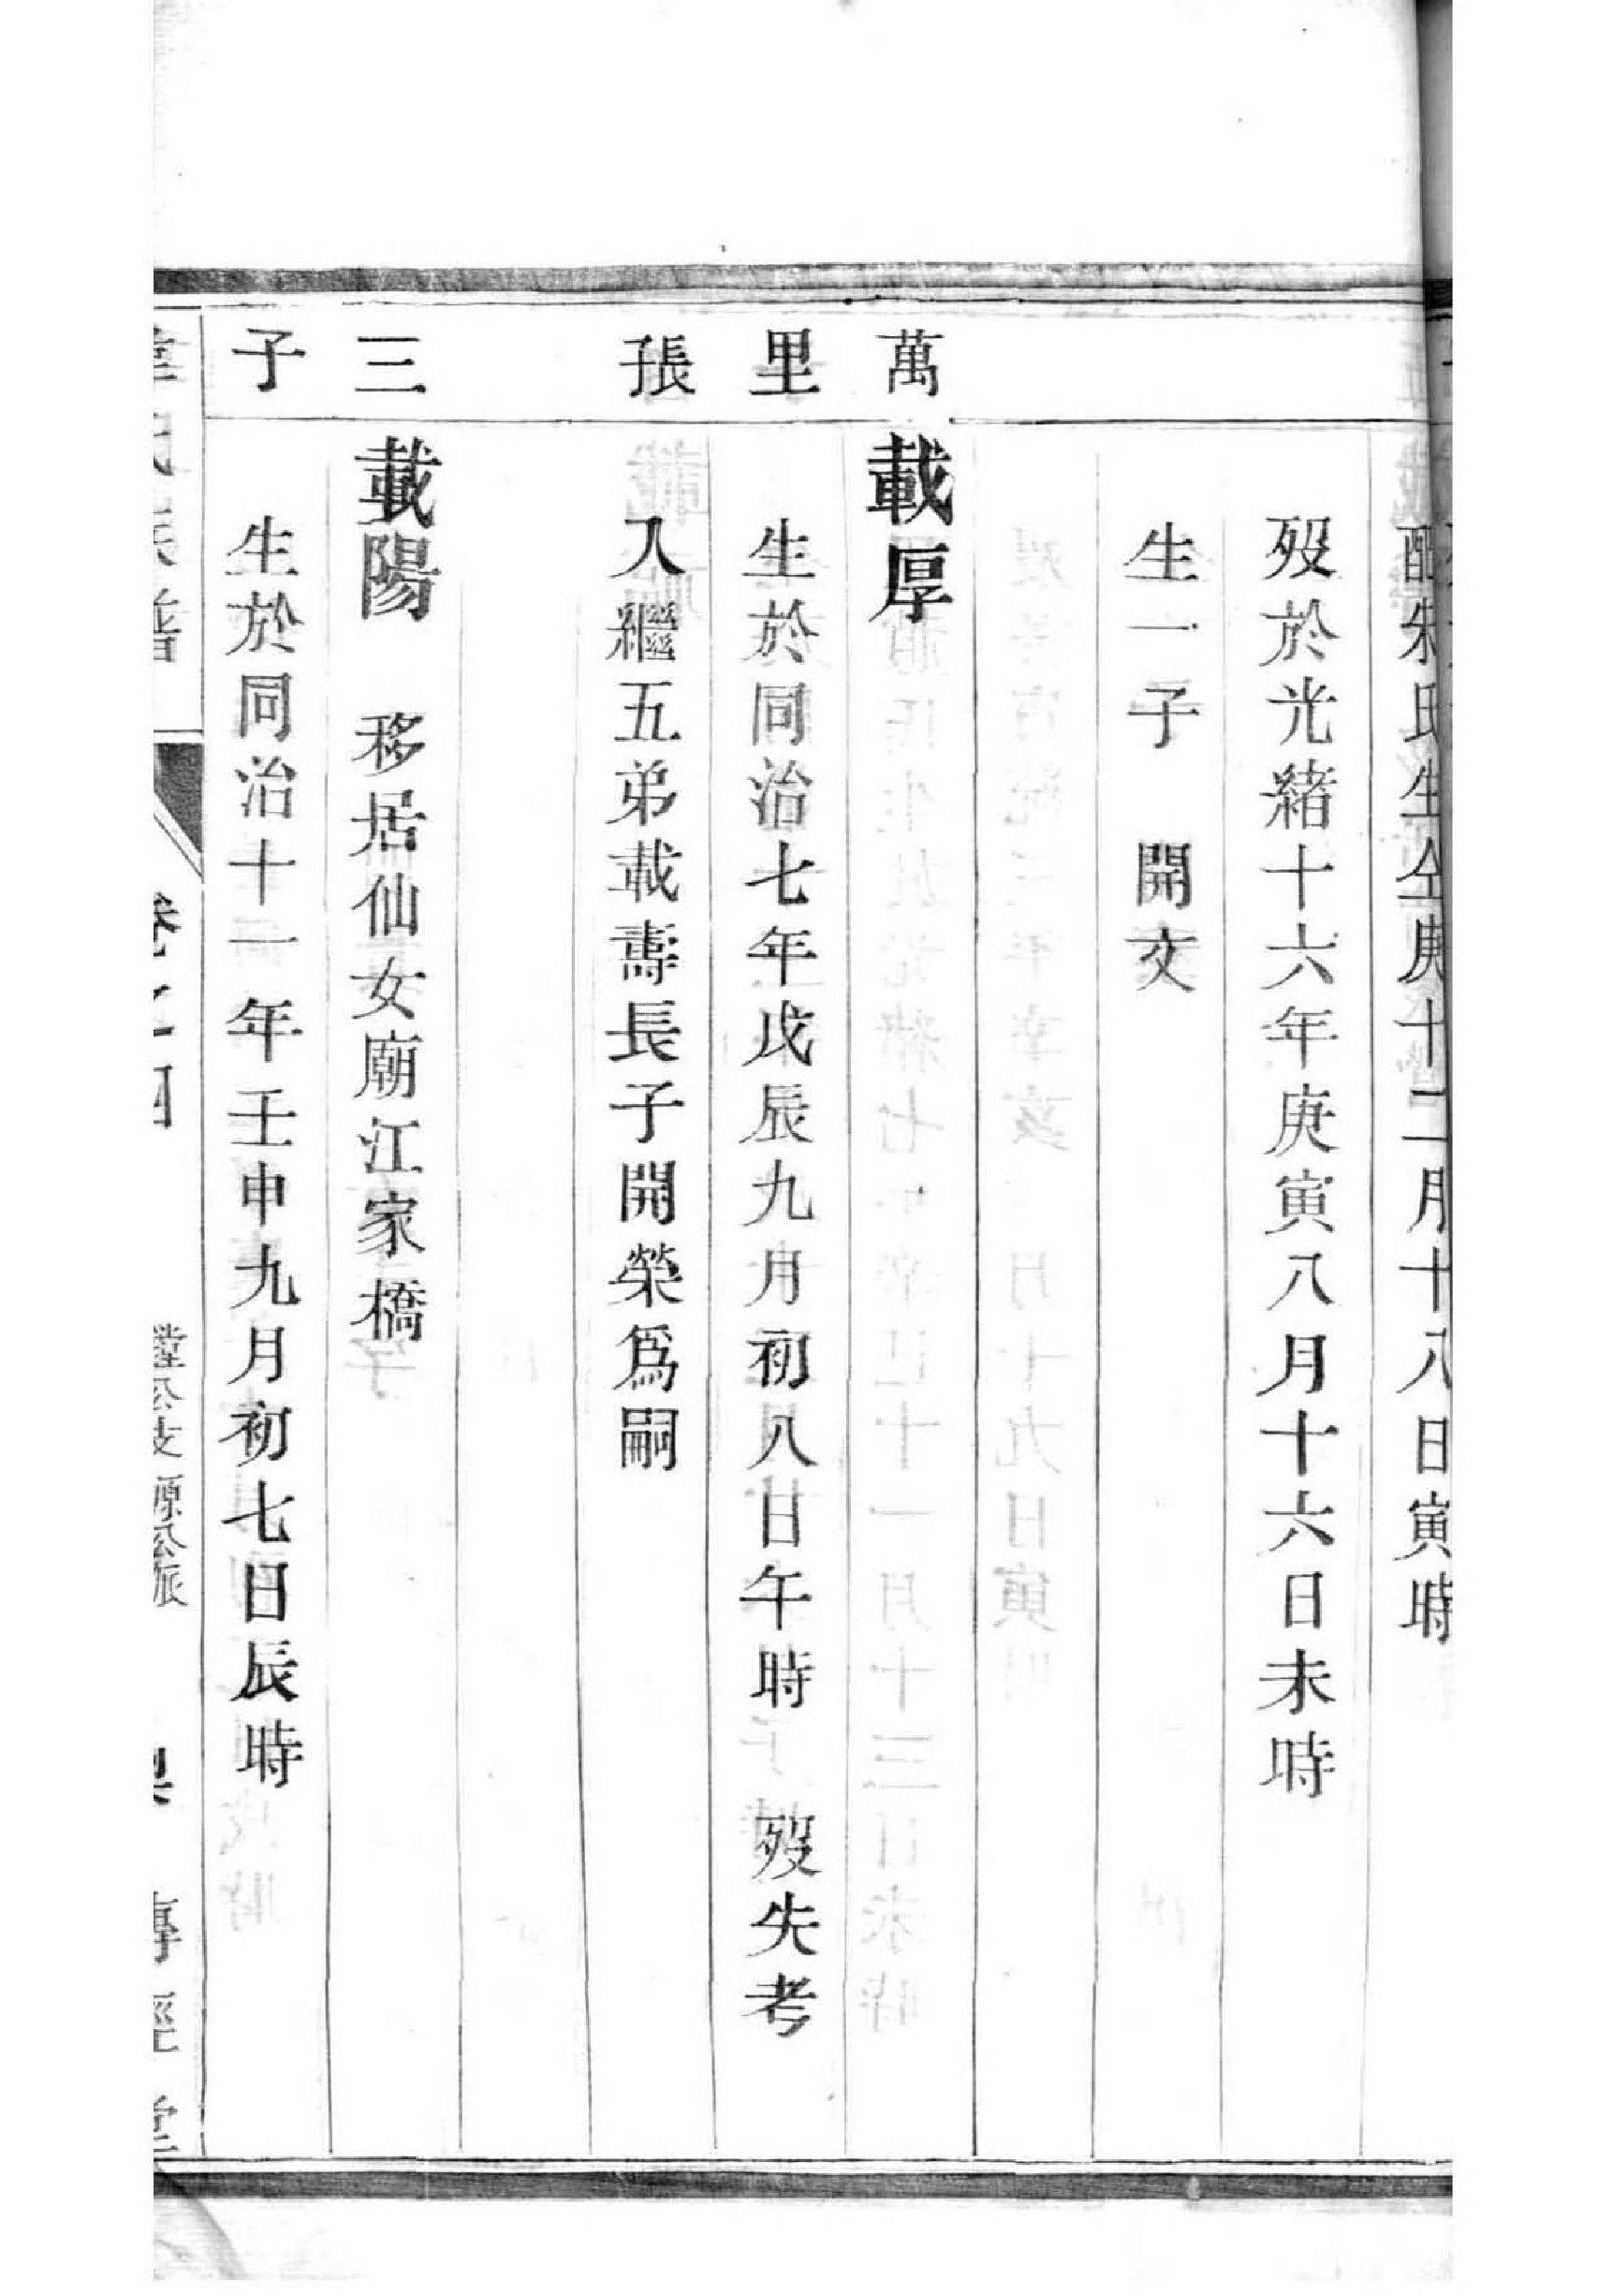 配朱氏生仝庚十二月十八日寅時
歿於光緒十六年庚寅八月十六日未時
生一子 開文
萬 載厚
里 生於同治七年戊辰九月初八日午時 歿失考
張 入繼五弟載壽長子開榮爲嗣
三 載陽 移居仙女廟江家橋
子 生於同治十一年壬申九月初七日辰時
氏族譜 卷之四 公支源公派 經堂